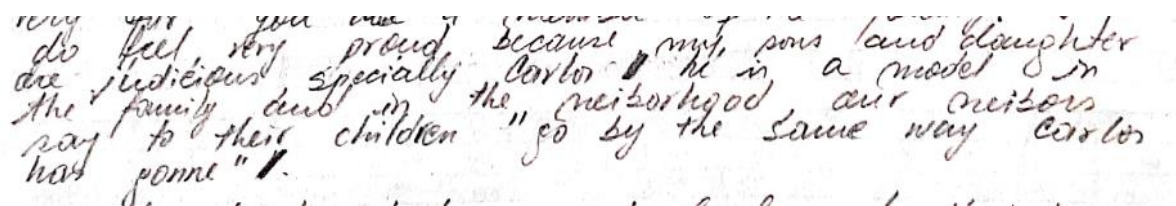 very you a member
do feel very proud, because my, sons and daughter
are judicious specially Carlos, he is a model in
the family and in the neiborhood, our neibors
say to their children "go by the same way Carlos
has gonne".